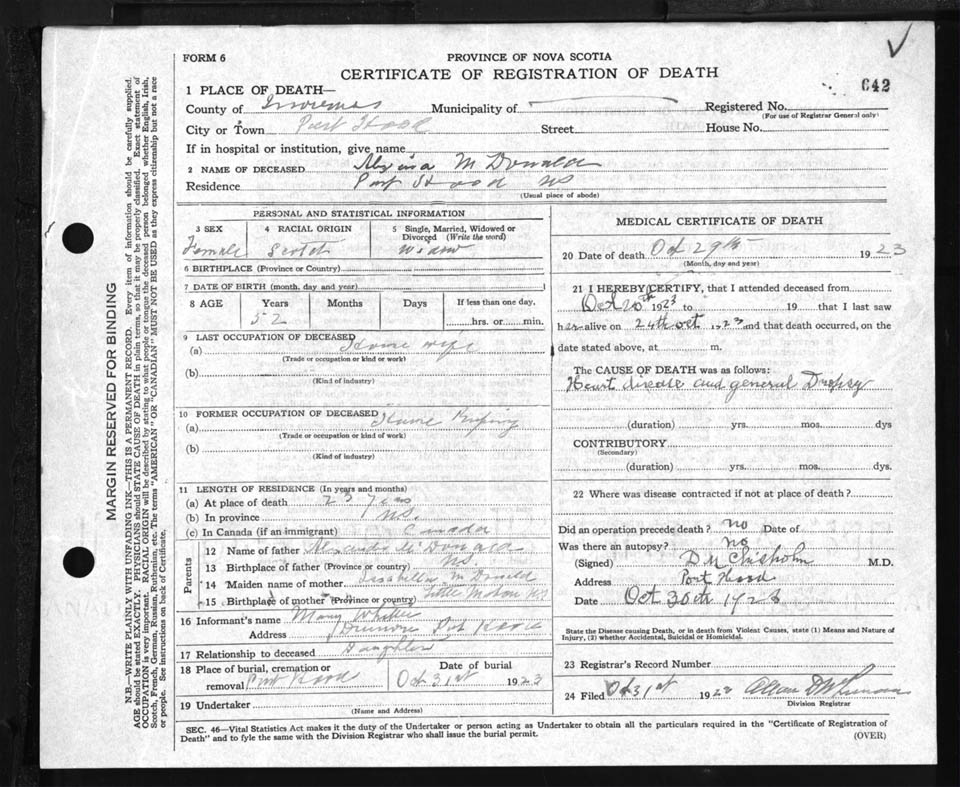 FORM 6
PROVINCE OF NOVA SCOTIA
CERTIFICATE OF REGISTRATION OF DEATH
642
1 PLACE OF DEATH—
County of Inverness Municipality of Registered No.
(For use of Registrar General only)
City or Town Port Hood Street House No.
If in hospital or institution, give name
2 NAME OF DECEASED McDonald
Residence Port Hood NS
(Usual place of abode)
PERSONAL AND STATISTICAL INFORMATION
3 SEX 4 RACIAL ORIGIN 5 Single, Married, Widowed or Divorced (Write the word)
Female Scotch Widow
6 BIRTHPLACE (Province or Country)
7 DATE OF BIRTH (month, day and year)
8 AGE Years Months Days If less than one day,
52 hrs. or min.
9 LAST OCCUPATION OF DECEASED
(a) House wife
(Trade or occupation or kind of work)
(b)
(Kind of industry)
10 FORMER OCCUPATION OF DECEASED
(a) House Keeping
(Trade or occupation or kind of work)
(b)
(Kind of industry)
11 LENGTH OF RESIDENCE (In years and months)
(a) At place of death 23 years
(b) In province NS.
(c) In Canada (if an immigrant) Canada
Parents
12 Name of father Alexander McDonald
13 Birthplace of father (Province or country) NS.
14 Maiden name of mother Isabella McDonald
15 Birthplace of mother (Province or country) Little Mabou NS
16 Informant's name Mary
Address Port Hood
17 Relationship to deceased Daughter
18 Place of burial, cremation or removal Port Hood Date of burial Oct 31st 1923
19 Undertaker
(Name and Address)
MEDICAL CERTIFICATE OF DEATH
20 Date of death Oct 29th 1923
(Month, day and year)
21 I HEREBY CERTIFY, that I attended deceased from
Oct 20th 1923 to 19 that I last saw
her alive on 24th Oct 1923 and that death occurred, on the
date stated above, at m.
The CAUSE OF DEATH was as follows:
Heart disease and general Dropsy
(duration) yrs. mos. dys
CONTRIBUTORY
(Secondary)
(duration) yrs. mos. dys.
22 Where was disease contracted if not at place of death?
Did an operation precede death? no Date of
Was there an autopsy? no
(Signed) D M Chisholm M.D.
Address Port Hood
Date Oct 30th 1923
State the Disease causing Death, or in death from Violent Causes, state (1) Means and Nature of
Injury, (2) whether Accidental, Suicidal or Homicidal.
23 Registrar's Record Number
24 Filed Oct 31st 1923
Division Registrar
SEC. 46—Vital Statistics Act makes it the duty of the Undertaker or person acting as Undertaker to obtain all the particulars required in the "Certificate of Registration of
Death" and to fyle the same with the Division Registrar who shall issue the burial permit.
(OVER)
MARGIN RESERVED FOR BINDING
N.B.—WRITE PLAINLY WITH UNFADING INK—THIS IS A PERMANENT RECORD. Every item of information should be carefully supplied.
AGE should be stated EXACTLY. PHYSICIANS should STATE CAUSE OF DEATH in plain terms, so that it may be properly classified. Exact statement of
OCCUPATION is very important. RACIAL ORIGIN will be described by stating to what people or tongue the deceased person belonged whether English, Irish,
Scotch, French, German, Russian, Ruthenian, etc. The terms "AMERICAN" OR "CANADIAN" MUST NOT BE USED as they express citizenship but not a race
or people. See instructions on back of Certificate.